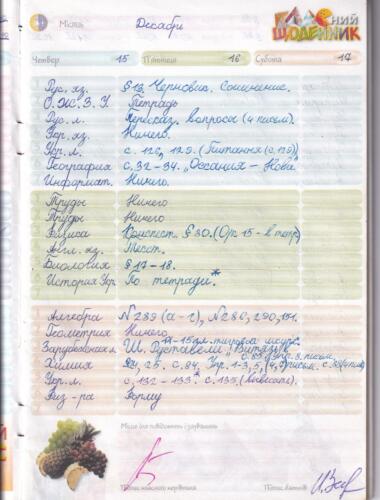 КЛАСНИЙ
ЩОДЕННИК
Місяць Декабрь
Четвер 15 П'ятниця 16 Субота 17
Рус. яз. § 13. Черновик. Сочинение.
О.Ж.З.Ч. Тетрадь
Рус. л. Пересказ. вопросы (4 письм.)
Укр. яз. Ничего.
Укр. л. с. 126, 129. (Питання (с. 129))
География с. 32 - 34. „Океания - Нова
Информат. Ничего.
Труды Ничего
Труды Ничего
Физика Конспект. § 30. (Упр. 15 - в тетр)
Англ. яз. Текст.
Биология § 17-18.
История Укр По тетради.*
Алгебра №289 (а-г), №286, 290, 191.
Геометрия Ничего
Зарубежная л. Ш. Руставели „Витязь в
Химия 24, 25. с. 84. Упр. 1-3,
Укр. л. с. 132 - 133. с. 135
Физ-ра Форму
Підпис класного керівника
Підпис батьків